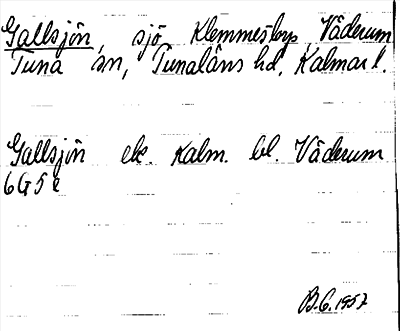 Gallsjön, sjö Klemmestorp Väderum
Tuna sn, Tunaläns hd, Kalmar l.
Gallsjön ek. Kalm. bl. Väderum
6G5e
B.C. 1957